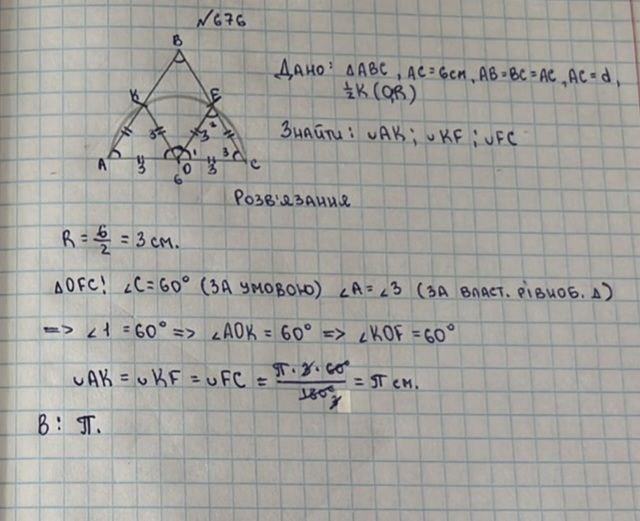 №676
B
K F
2
3 3
1 3
A 3 O 3 C
6
Дано: ΔABC, AC=6см, AB=BC=AC, AC=d,
½K(O;R)
Знайти: ∪AK; ∪KF; ∪FC
Розв'язання
R = 6/2 = 3 см.
ΔOFC: ∠C=60° (за умовою) ∠2=∠3 (за власт. рівноб. Δ)
=> ∠1=60° => ∠AOK = 60° => ∠KOF = 60°
∪AK = ∪KF = ∪FC = π·3·60°/180° = π см.
В: π.